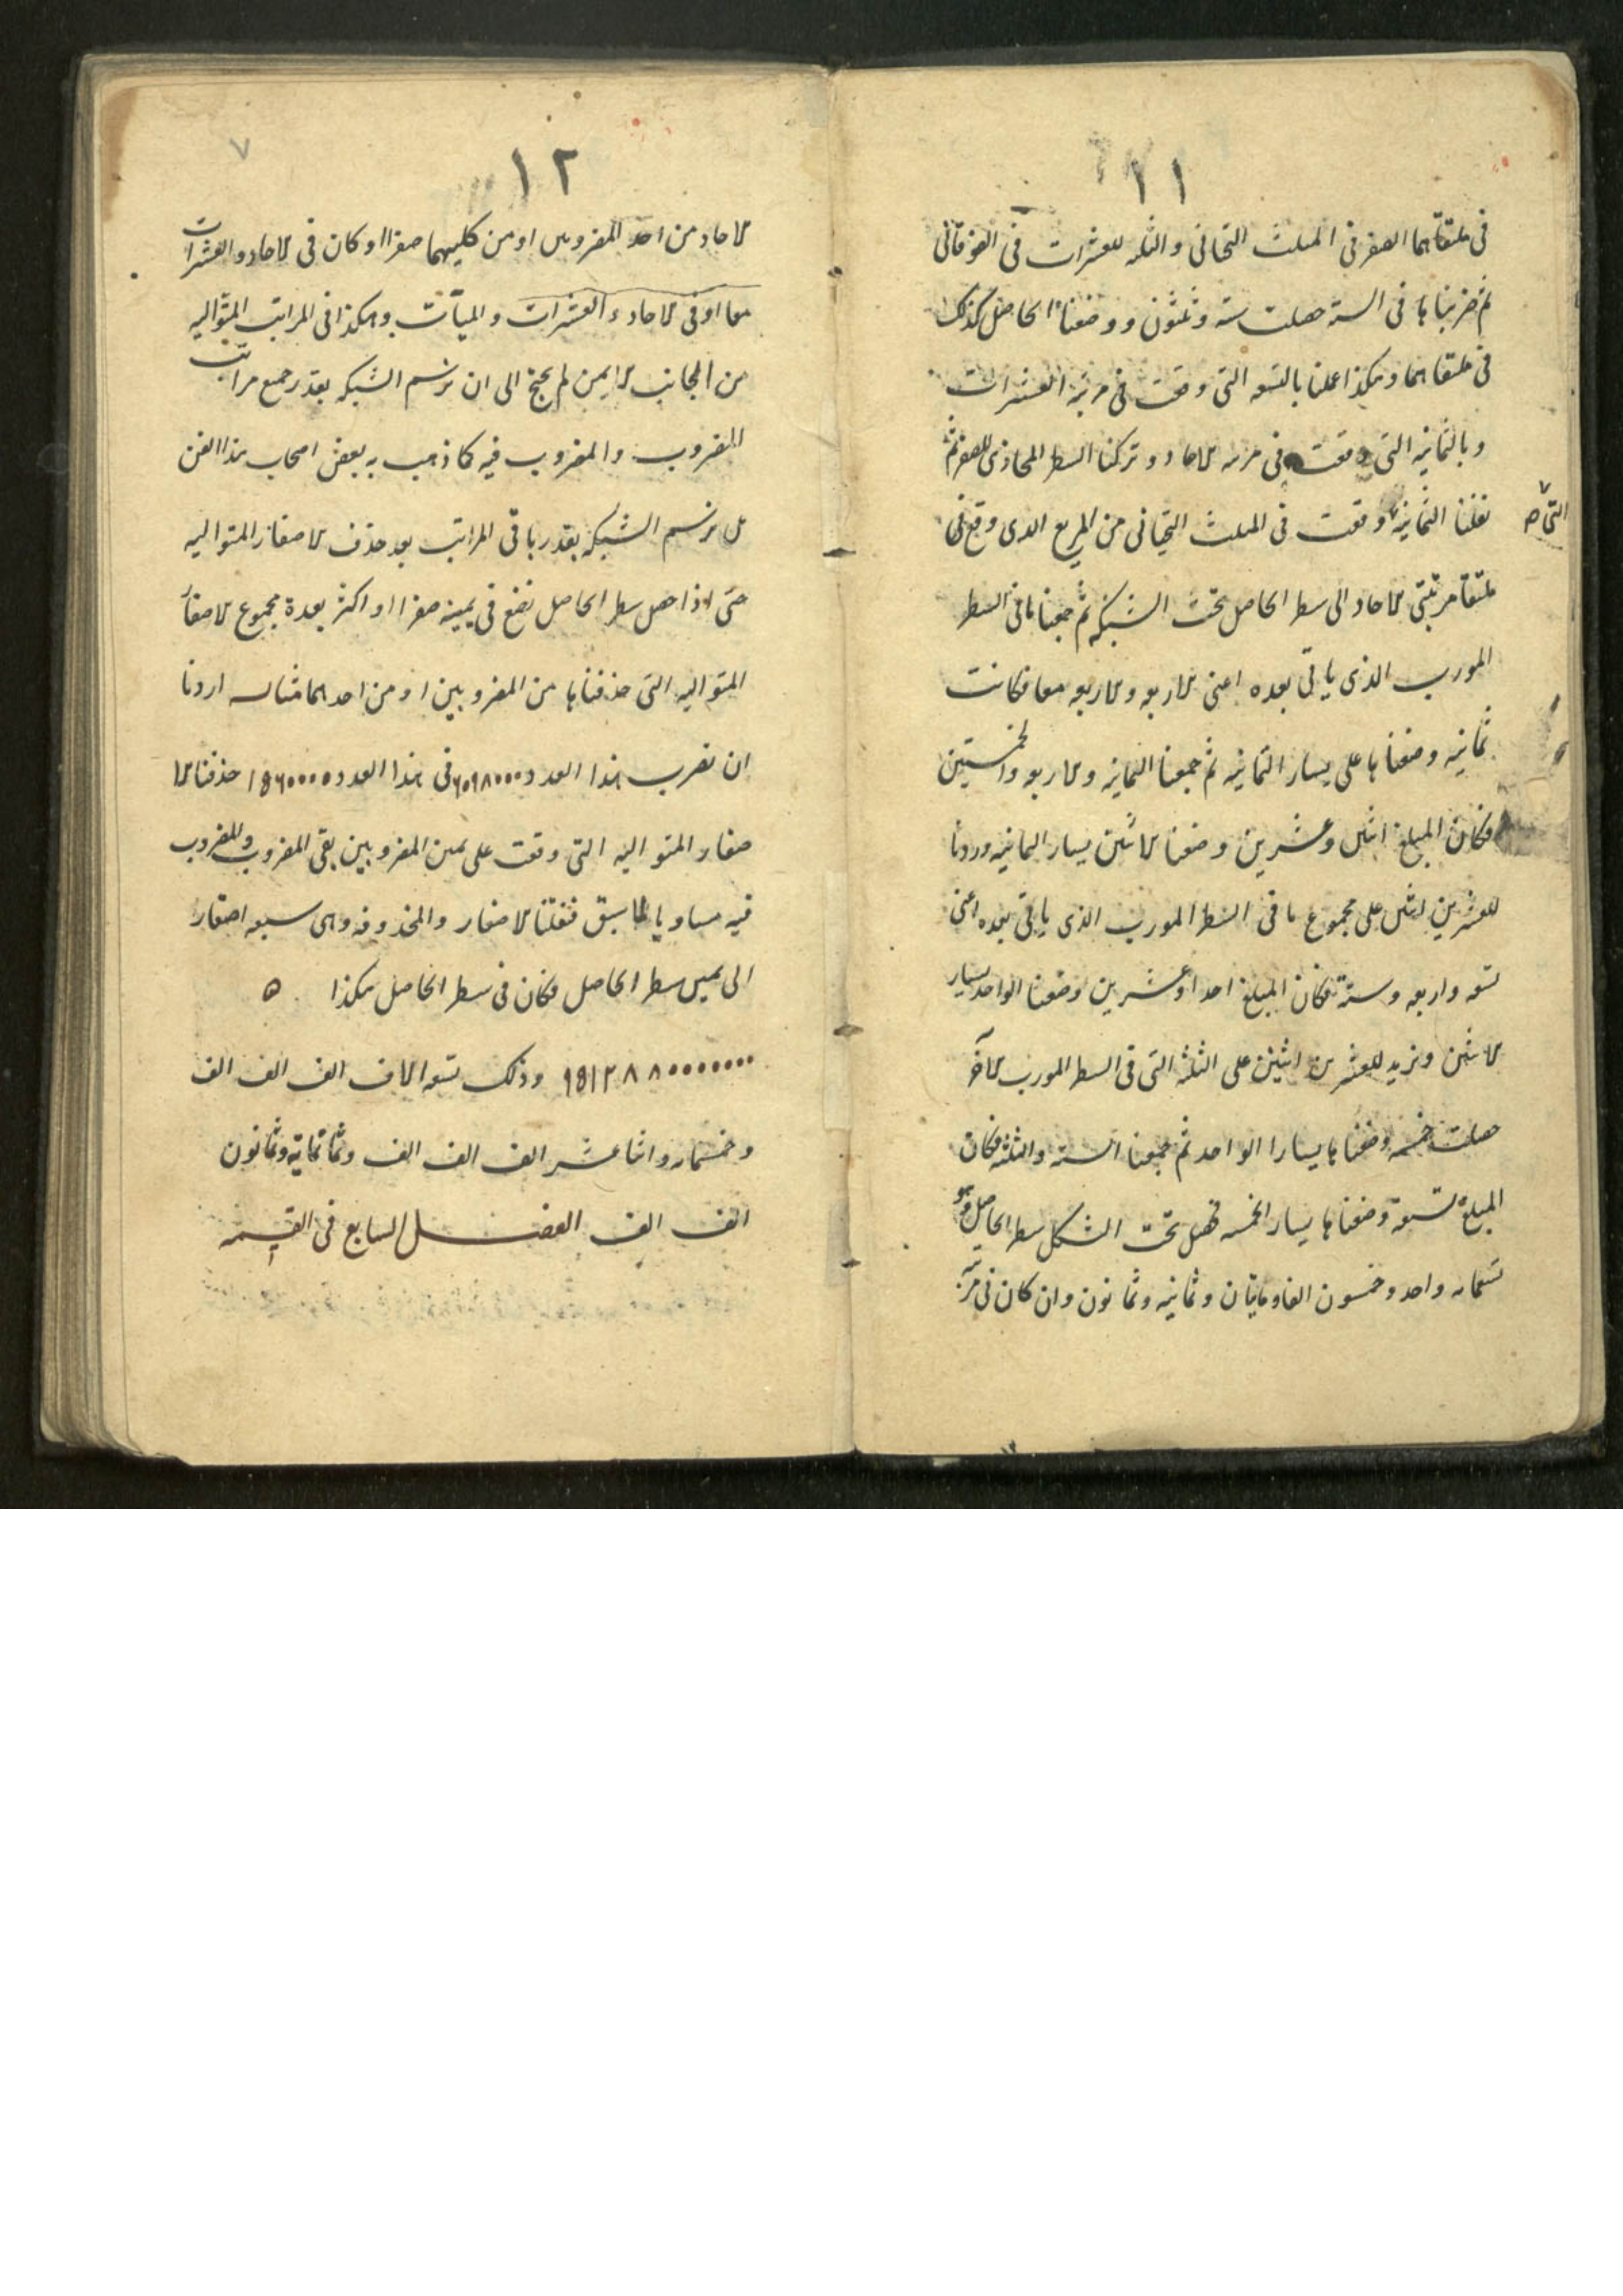 ١١
فى ملتقاهما الصفر فى المثلث التحتانى والثلثه للعشرات فى الفوقانى
ثم ضربناها فى الستة حصلت ستة وثلثون ووضعنا الحاصل كذلك
فى ملتقاهما وهكذا عملنا بالتسعه التى وقعت فى مرتبة العشرات
وبالثمانيه التى وقعت فى مرتبه الاحاد وتركنا السطر المحاذى للصفر ثم
نقلنا الثمانية وقعت فى المثلث التحتانى من المربع الذى وقع فى
التى صح
ملتقا مرتبتى الاحاد الى سطر الحاصل تحت الشبكه ثم جمعنا ما فى السطر
المورب الذى ياتى بعده اعنى الاربعه والاربعه معا فكانت
ثمانيه وضعناها على يسار الثمانيه ثم جمعنا الثمانيه والاربعه والخمستين
فكان المبلغ اثنين وعشرين وضعنا الاثنين يسار الثمانيه وزدنا
للعشرين اثنين على مجموع ما فى السطر المورب الذى ياتى بعده اعنى
تسعه واربعه وستة فكان المبلغ احدا وعشرين وضعنا الواحد يسار
الاثنين ونزيد للعشرين اثنين على الثلثة التى فى السطر المورب الآخر
حصلت خمسه وضعناها يسارا الواحد ثم جمعنا السته والثلثه فكان
المبلغ تسعة وضعناها يسار الخمسه فحصل تحت الشكل سطر الحاصل وهو
تسعمايه واحد وخمسون الفا ومايتان وثمانيه وثمانون وان كان فى مرتبه
٧
١٢
الاحاد من احد المضروبين او من كليهما صفرا او كان فى الاحاد والعشرات
معا او فى الاحاد والعشرات والميآت وهكذا فى المراتب المتواليه
من الجانب الايمن لم يحتج الى ان نرسم الشبكه بقدر جميع مراتب
المضروب والمضروب فيه كما ذهب به بعض اصحاب هذا الفن
بل نرسم الشبكه بقدر باقى المراتب بعد حذف الاصفار المتواليه
حتى اذا حصل سطر الحاصل نضع فى يمينه صفرا او اكثر بعدة مجموع الاصفار
المتواليه التى حذفناها من المضروبين او من احدهما مثاله اردنا
ان نضرب هذا العدد ٦٠٩٨٠٠٠ فى هذا العدد ١٥٦٠٠٠٠ حذفنا الا
صفار المتواليه التى وقعت على يمين المضروبين بقى المضروب والمضروب
فيه مساويا لما سبق فنقلنا الاصفار والمحذوفه وهى سبعه اصفار
الى يمين سطر الحاصل فكان فى سطر الحاصل هكذا ٥
٩٥١٢٨٨٠٠٠٠٠٠٠ وذلك تسعه الاف الف الف الف
وخمسمايه واثنا عشر الف الف الف وثمانمايه وثمانون
الف الف الفصل السابع فى القسمه